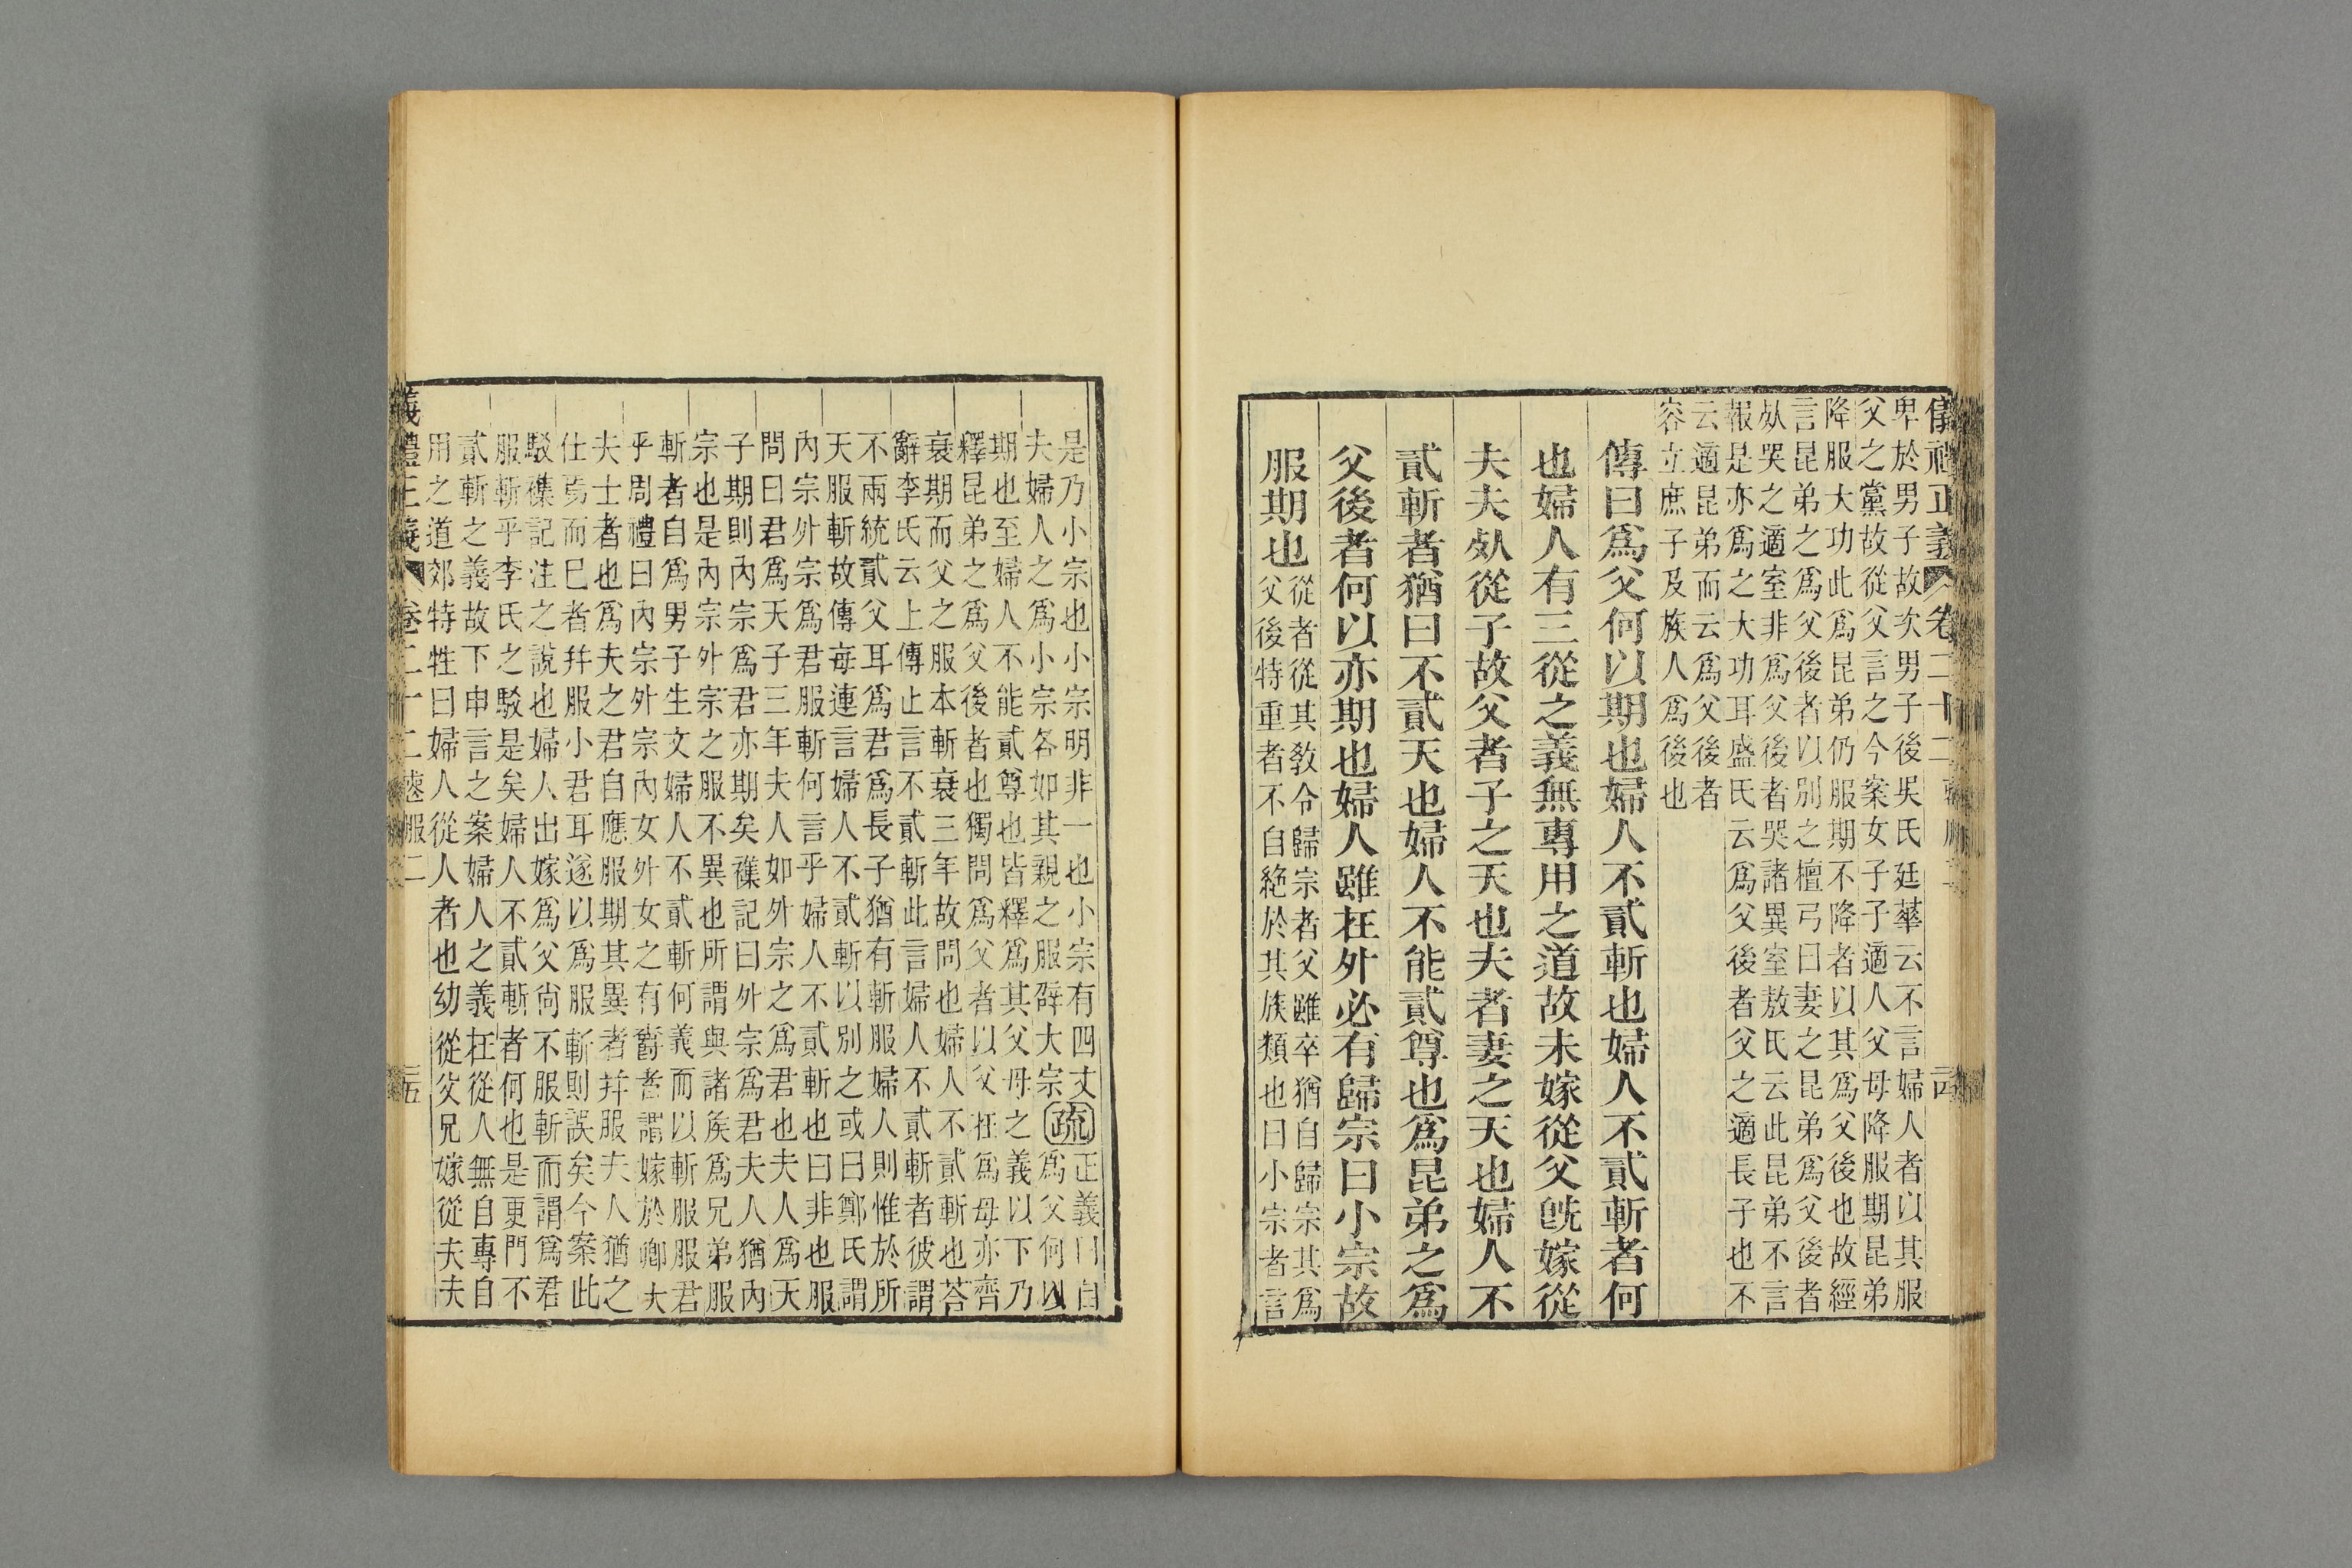 儀禮正義 卷二十二 喪服二
卑於男子故次男子後吳氏廷華云不言婦人者以其服
父之黨故從父言之今案女子子適人父母降服期昆弟
降服大功此爲昆弟仍服期不降者以其爲父後也故經
言昆弟之爲父後者以別之檀弓曰妻之昆弟爲父後者
㚈哭之適室非爲父後者哭諸異室敖氏云此昆弟不言
報是亦爲之大功耳盛氏云爲父後者父之適長子也不
云適昆弟而云爲父後者
容立庶子及族人爲後也
傳曰爲父何以期也婦人不貳斬也婦人不貳斬者何
也婦人有三從之義無專用之道故未嫁從父旣嫁從
夫夫㚈從子故父者子之天也夫者妻之天也婦人不
貳斬者猶曰不貳天也婦人不能貳尊也爲昆弟之爲
父後者何以亦期也婦人雖在外必有歸宗曰小宗故
服期也從者從其敎令歸宗者父雖卒猶自歸宗其爲
父後特重者不自絶於其族類也曰小宗者言
是乃小宗也小宗明非一也小宗有四丈疏正義曰自
夫婦人之爲小宗各如其親之服辟大宗爲父何以
期也至婦人不能貳尊也皆釋爲其父母之義以下乃
釋昆弟之爲父後者也獨問爲父者以父在爲母亦齊
衰期而父之服本斬衰三年故問也婦人不貳斬也荅
辭李氏云上傳止言不貳斬此言婦人不貳斬者彼謂
不兩統貳父耳爲君爲長子猶有斬服婦人則惟於所
天服斬故傳每連言婦人不貳斬以別之或曰鄭氏謂
內宗外宗爲君服斬何言乎婦人不貳斬也曰非也服
問曰君爲天子三年夫人如外宗之爲君也夫人爲天
子期則內宗爲君亦期矣襍記曰外宗爲君夫人猶內
宗也是內宗外宗之服不異也所謂與諸矦爲兄弟服
斬者自爲男子生文婦人不貳斬何義而以斬服服君
乎周禮曰內宗外宗內女外女之有爵者謂嫁於卿大
夫士者也爲夫之君自應服期其異者幷服夫人猶之
仕焉而巳者幷服小君耳遂以爲服斬則誤矣今案此
駁襍記注之說也婦人出嫁爲父尙不服斬而謂爲君
服斬乎李氏之駁是矣婦人不貳斬者何也是更門不
貳斬之義故下申言之案婦人之義在從人無自專自
用之道郊特牲曰婦人從人者也幼從父兄嫁從夫夫
義禮正義 卷二十二 喪服二 三五